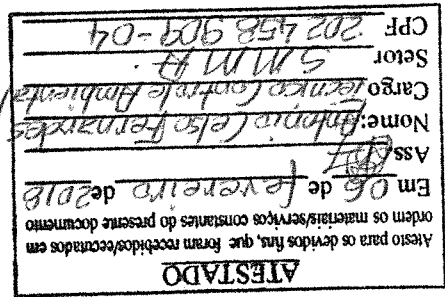 ATESTADO
Atesto para os devidos fins, que foram recebidos/executados em
ordem os materiais/serviços constantes do presente documento
Em 06 de fevereiro de 2018
Ass
Nome: Antonio Celso Fernandes
Cargo Técnico Controle Ambiental
Setor SMMA
CPF 202 458 909-04